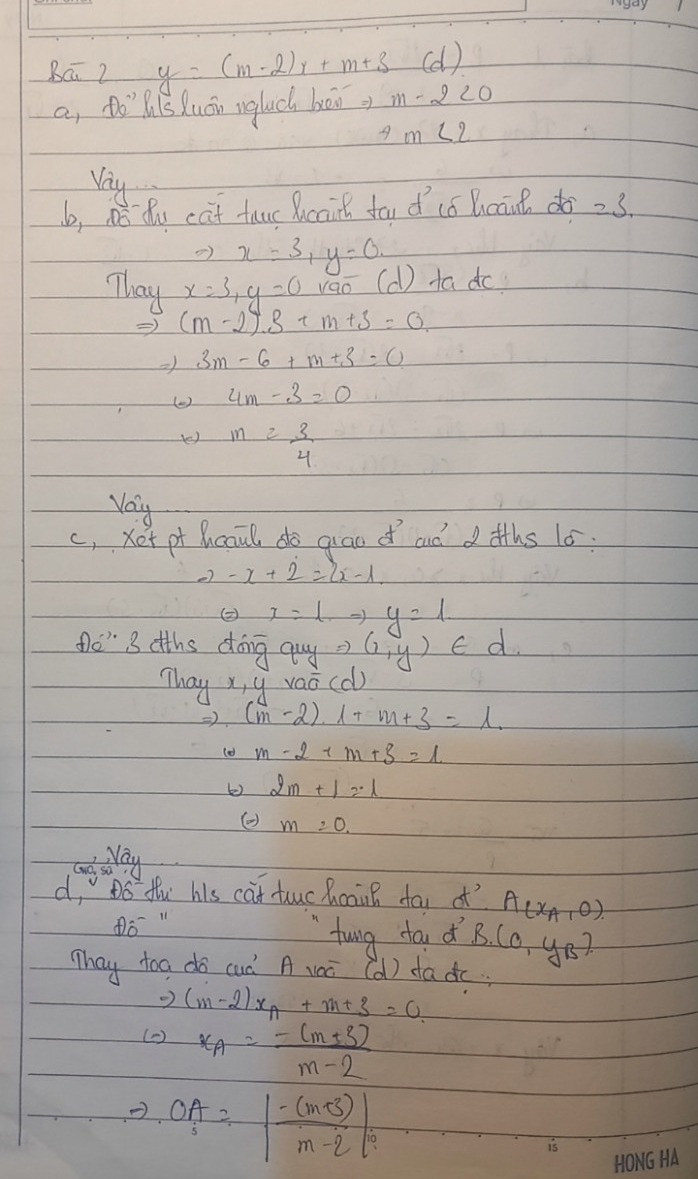 Ngày
Bài 2 y = (m-2)x + m+3 (d)
a, Để h/s luôn nghịch biến ⇒ m - 2 < 0
⇒ m < 2
Vậy...
b, Đồ thị cắt trục hoành tại đ' có hoành độ = 3.
⇒ x = 3, y = 0.
Thay x = 3, y = 0 vào (d) ta đc:
⇒ (m-2).3 + m+3 = 0.
⇒ 3m - 6 + m+3 = 0
⇔ 4m - 3 = 0
⇔ m = 3/4
Vậy...
c, Xét pt hoành độ giao đ' của 2 đths là:
⇒ -x + 2 = 2x - 1.
⇔ x = 1. ⇒ y = 1.
Để 3 đths đồng quy ⇒ (x,y) ∈ d.
Thay x, y vào (d)
⇒ (m-2).1 + m+3 = 1.
⇔ m - 2 + m+3 = 1.
⇔ 2m + 1 = 1
⇔ m = 0.
Vậy...
Giả sử
d, Đồ thị h/s cắt trục hoành tại đ' A(x_A, 0)
Đồ " " tung tại đ' B.(0, y_B).
Thay toạ độ của A vào (d) ta đc:
⇒ (m-2)x_A + m+3 = 0.
⇔ x_A = -(m+3)/(m-2)
⇒ OA = |-(m+3)/(m-2)|
5 10 15
HONG HA